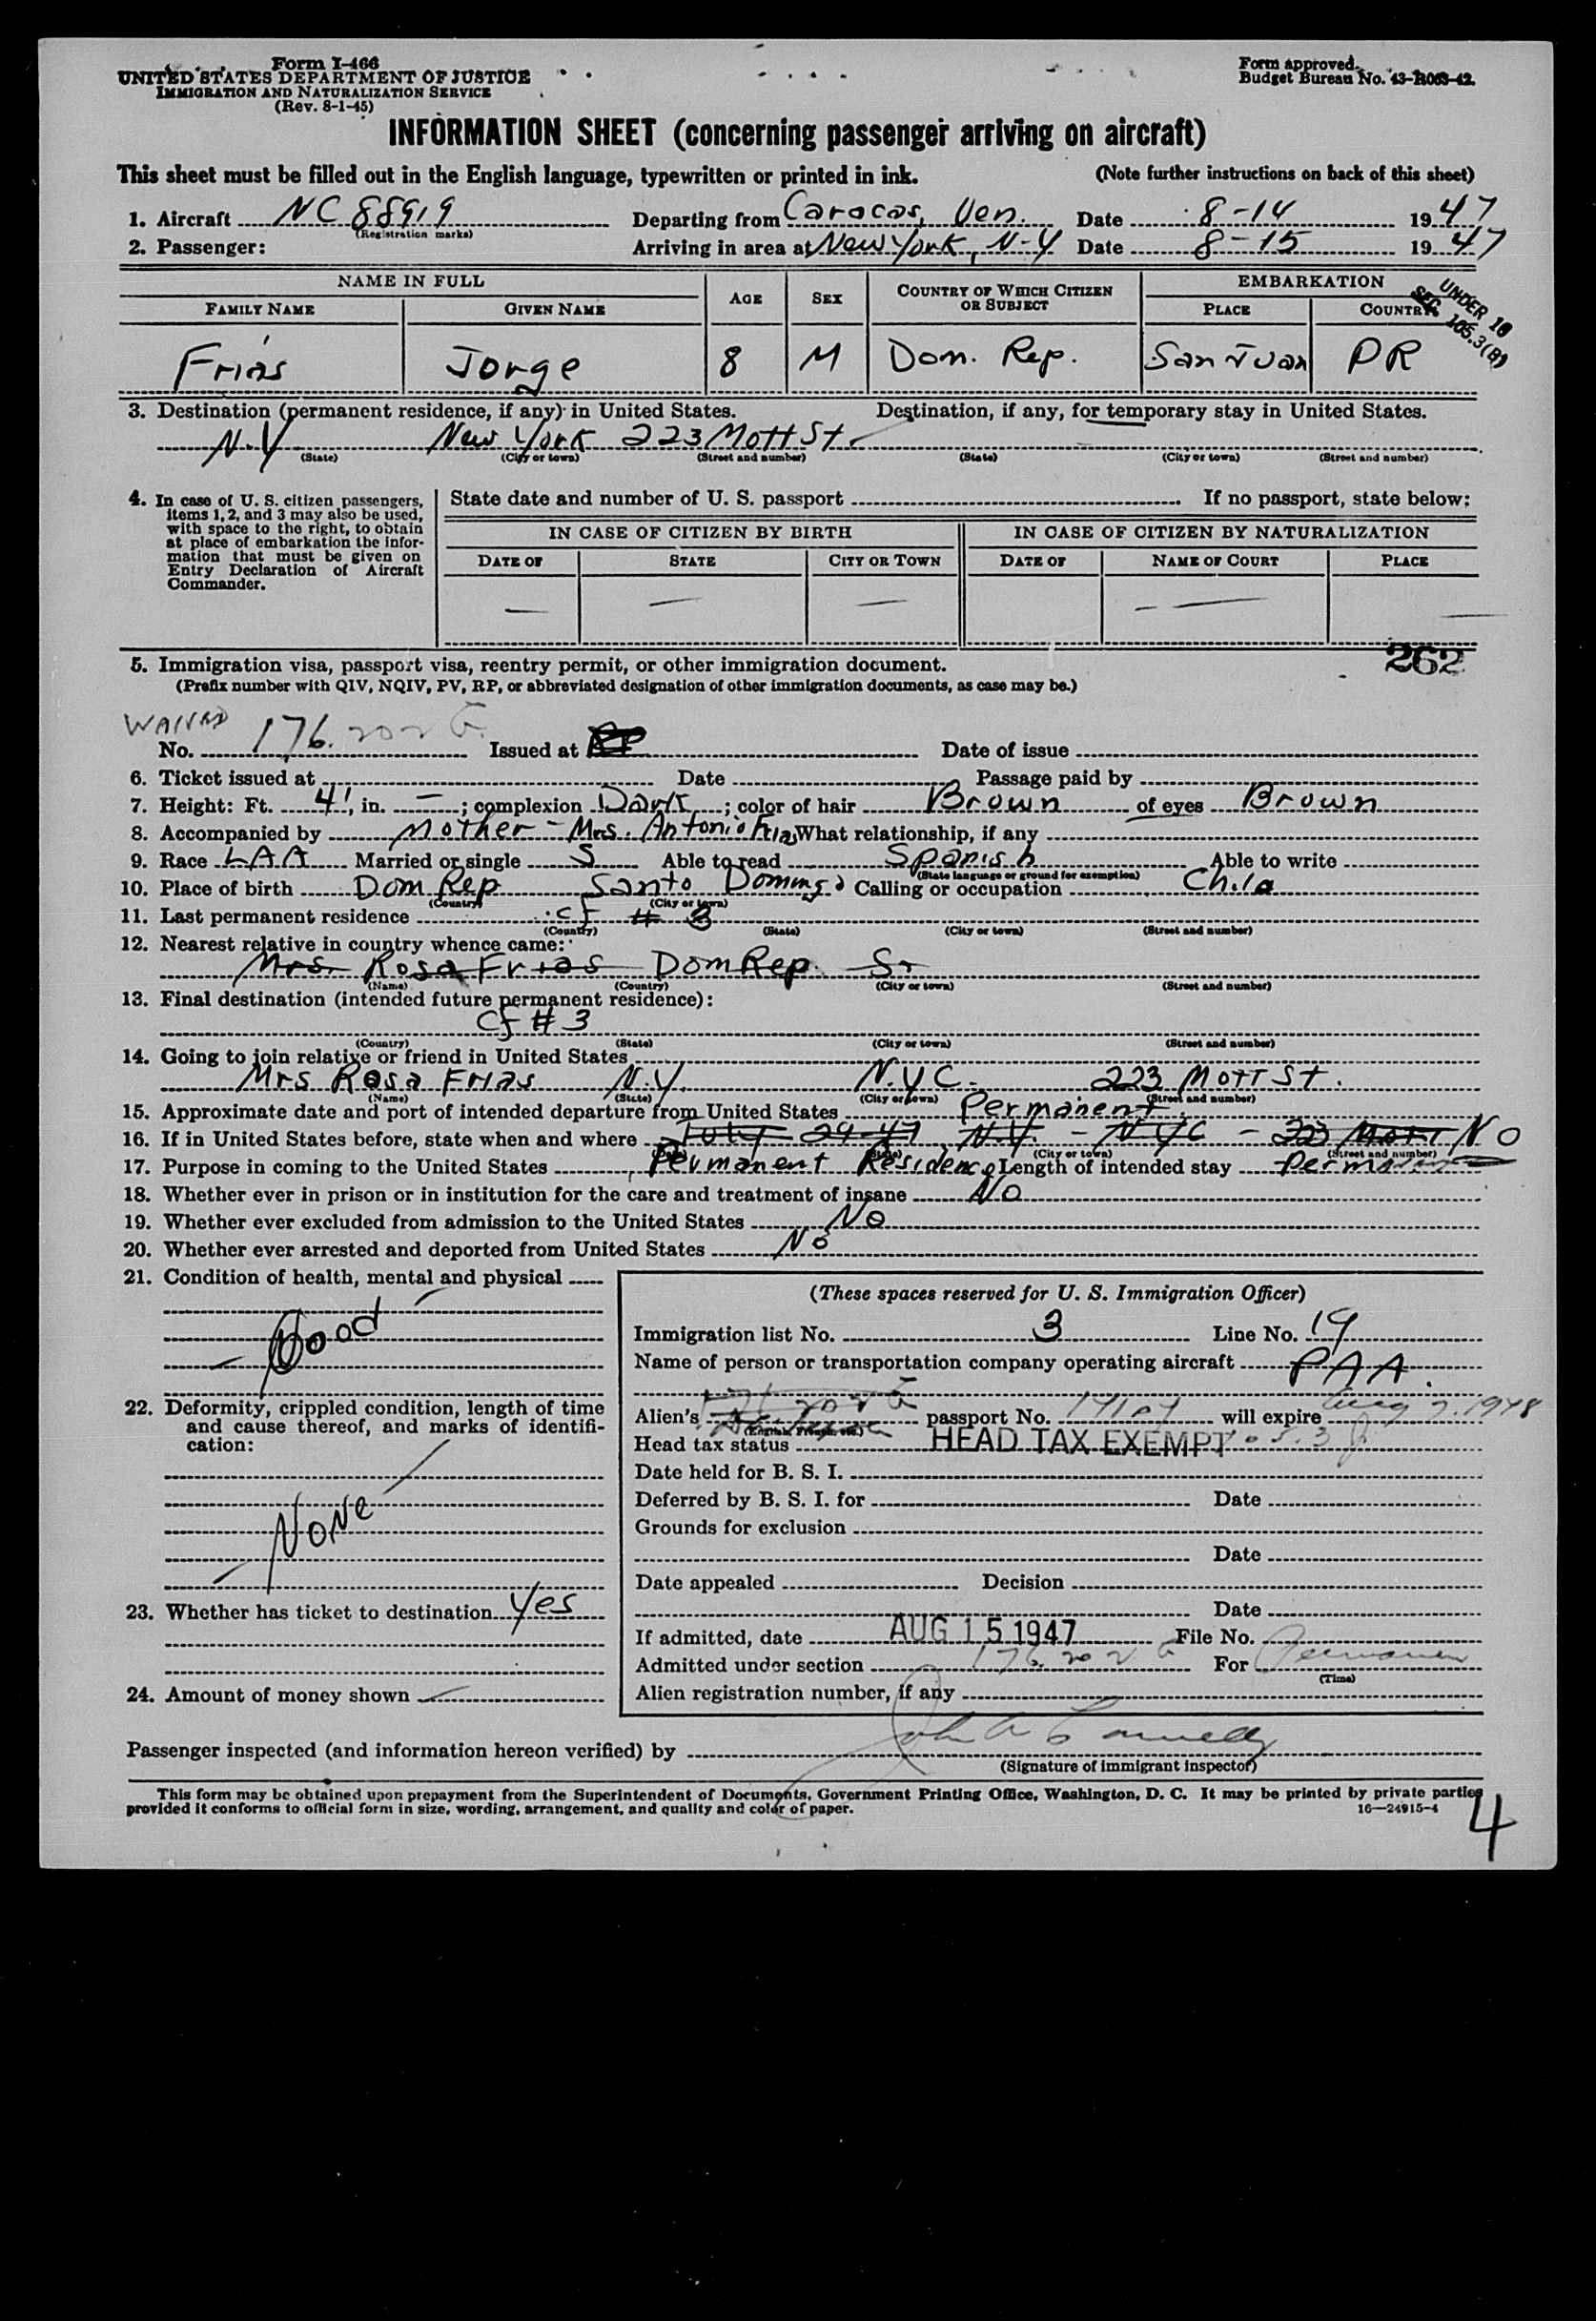 Form I-466
UNITED STATES DEPARTMENT OF JUSTICE
IMMIGRATION AND NATURALIZATION SERVICE
(Rev. 8-1-45)
Form approved.
Budget Bureau No. 43-R063-42.
INFORMATION SHEET (concerning passenger arriving on aircraft)
This sheet must be filled out in the English language, typewritten or printed in ink. (Note further instructions on back of this sheet)
1. Aircraft NC 88919 Departing from Caracas, Ven. Date 8-14 1947
(Registration marks)
2. Passenger: Arriving in area at New York, N-Y Date 8-15 1947
NAME IN FULL AGE SEX COUNTRY OF WHICH CITIZEN OR SUBJECT EMBARKATION
FAMILY NAME GIVEN NAME PLACE COUNTRY
UNDER 16
SEC. 105.3(B)
Frias Jorge 8 M Dom. Rep. San Juan PR
3. Destination (permanent residence, if any) in United States. Destination, if any, for temporary stay in United States.
N.Y New York 223 Mott St.
(State) (City or town) (Street and number) (State) (City or town) (Street and number)
4. In case of U. S. citizen passengers, items 1, 2, and 3 may also be used, with space to the right, to obtain at place of embarkation the information that must be given on Entry Declaration of Aircraft Commander.
State date and number of U. S. passport If no passport, state below:
IN CASE OF CITIZEN BY BIRTH IN CASE OF CITIZEN BY NATURALIZATION
DATE OF STATE CITY OR TOWN DATE OF NAME OF COURT PLACE
262
5. Immigration visa, passport visa, reentry permit, or other immigration document.
(Prefix number with QIV, NQIV, PV, RP, or abbreviated designation of other immigration documents, as case may be.)
WAIVED
No. 176.202 Issued at Date of issue
6. Ticket issued at Date Passage paid by
7. Height: Ft. 4', in. — ; complexion Dark ; color of hair Brown of eyes Brown
8. Accompanied by Mother - Mrs. Antonio Frias What relationship, if any
9. Race LAA Married or single S Able to read Spanish Able to write
(State language or ground for exemption)
10. Place of birth Dom Rep Santo Domingo Calling or occupation Child
(Country) (City or town)
11. Last permanent residence cf # 3
(Country) (State) (City or town) (Street and number)
12. Nearest relative in country whence came:
Mrs. Rosa Frias Dom Rep.
(Name) (Country) (City or town) (Street and number)
13. Final destination (intended future permanent residence):
cf # 3
(Country) (State) (City or town) (Street and number)
14. Going to join relative or friend in United States
Mrs Rosa Frias N.Y. N.Y C. 223 Mott St.
(Name) (State) (City or town) (Street and number)
15. Approximate date and port of intended departure from United States Permanent
16. If in United States before, state when and where July 29-47 N.Y. - NYC - 223 Mott NO
(City or town) (Street and number)
17. Purpose in coming to the United States Permanent Residence Length of intended stay Permanent
18. Whether ever in prison or in institution for the care and treatment of insane No
19. Whether ever excluded from admission to the United States No
20. Whether ever arrested and deported from United States No
21. Condition of health, mental and physical
Good
22. Deformity, crippled condition, length of time and cause thereof, and marks of identification:
None
23. Whether has ticket to destination Yes
24. Amount of money shown
(These spaces reserved for U. S. Immigration Officer)
Immigration list No. 3 Line No. 19
Name of person or transportation company operating aircraft PAA.
Alien's passport No. will expire Aug 7, 1948
(English, French, etc.)
Head tax status HEAD TAX EXEMPT
Date held for B. S. I.
Deferred by B. S. I. for Date
Grounds for exclusion
Date
Date appealed Decision
Date
If admitted, date AUG 15 1947 File No.
Admitted under section 176.202 For Permanent
(Time)
Alien registration number, if any
Passenger inspected (and information hereon verified) by
(Signature of immigrant inspector)
This form may be obtained upon prepayment from the Superintendent of Documents, Government Printing Office, Washington, D. C. It may be printed by private parties
provided it conforms to official form in size, wording, arrangement, and quality and color of paper. 16—24915-4
4